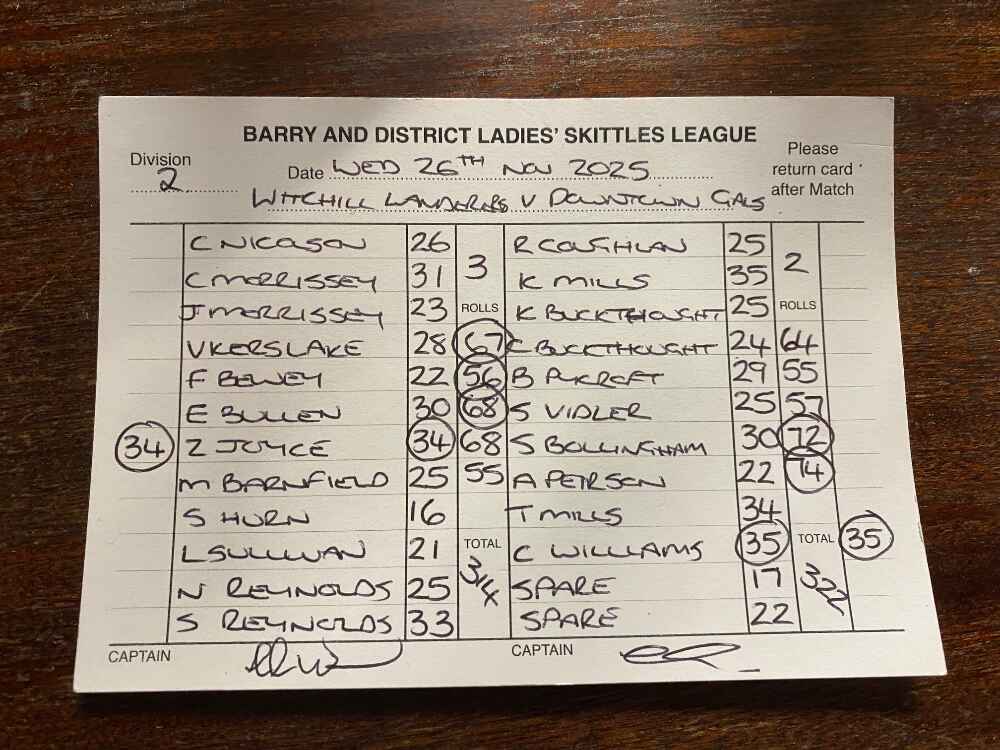 BARRY AND DISTRICT LADIES' SKITTLES LEAGUE
Division 2
Date WED 26TH NOV 2025
Please return card after Match
WITCHILL WANDERERS V DOWNTOWN GALS
C NICOSON 26 3 R COUGHLAN 25 2
C MORRISSEY 31 K MILLS 35
J MORRISSEY 23 ROLLS K BUCKTHOUGHT 25 ROLLS
V KERSLAKE 28 67 C BUCKTHOUGHT 24 64
F BEWEY 22 56 B PYCROFT 29 55
E BULLEN 30 68 S VIDLER 25 57
34 Z JOYCE 34 68 S BOLLINGHAM 30 72
M BARNFIELD 25 55 A PETERSON 22 74
S HURN 16 T MILLS 34
L SULLIVAN 21 TOTAL C WILLIAMS 35 TOTAL 35
N REYNOLDS 25 314 SPARE 17 322
S REYNOLDS 33 SPARE 22
CAPTAIN CAPTAIN